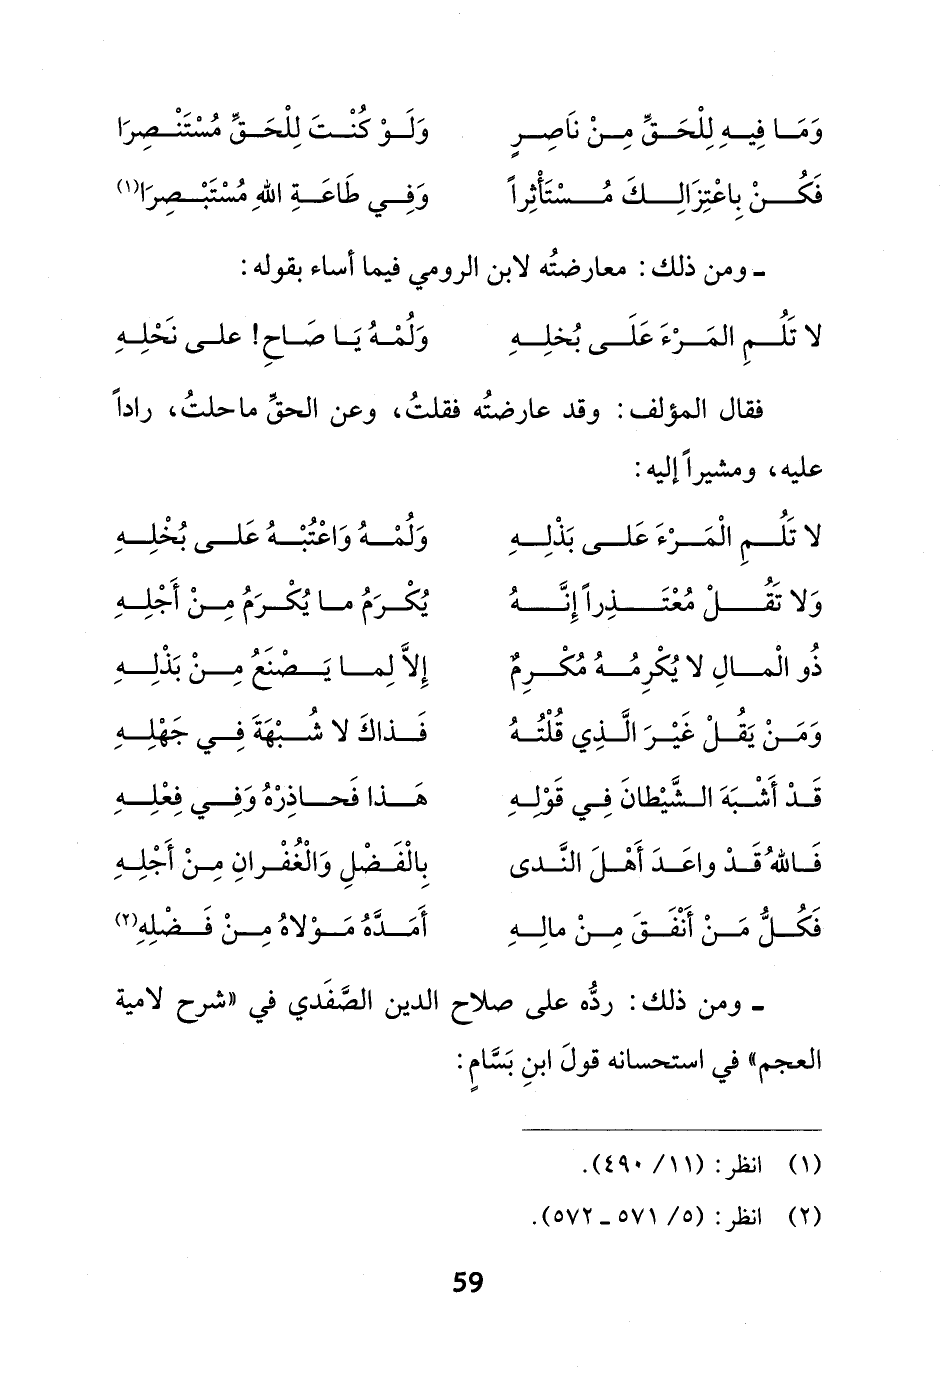 وَمَا فِيهِ لِلْحَقِّ مِنْ نَاصِرٍ وَلَوْ كُنْتَ لِلْحَقِّ مُسْتَنْصِرَا
فَكُنْ بِاعْتِزَالِكَ مُسْتَأْثِراً وَفِي طَاعَةِ اللهِ مُسْتَبْصِرَا(١)
ـ ومن ذلك: معارضتُه لابن الرومي فيما أساء بقوله:
لا تَلُمِ المَرْءَ عَلَى بُخلِهِ وَلُمْهُ يَا صَاحِ! على نَحْلِهِ
فقال المؤلف: وقد عارضتُه فقلتُ، وعن الحقِّ ما حلتُ، راداً
عليه، ومشيراً إليه:
لا تَلُمِ الْمَرْءَ عَلَى بَذْلِهِ وَلُمْهُ وَاعْتُبْهُ عَلَى بُخْلِهِ
وَلا تَقُلْ مُعْتَذِراً إِنَّهُ يُكْرَمُ ما يُكْرَمُ مِنْ أَجْلِهِ
ذُو الْمالِ لا يُكْرِمُهُ مُكْرِمٌ إِلاَّ لِما يَصْنَعُ مِنْ بَذْلِهِ
وَمَنْ يَقُلْ غَيْرَ الَّذِي قُلْتُهُ فَذاكَ لا شُبْهَةَ فِي جَهْلِهِ
قَدْ أَشْبَهَ الشَّيْطانَ فِي قَوْلِهِ هَذا فَحاذِرْهُ وَفِي فِعْلِهِ
فَاللهُ قَدْ واعَدَ أَهْلَ النَّدى بِالْفَضْلِ وَالْغُفْرانِ مِنْ أَجْلِهِ
فَكُلُّ مَنْ أَنْفَقَ مِنْ مالِهِ أَمَدَّهُ مَوْلاهُ مِنْ فَضْلِهِ(٢)
ـ ومن ذلك: ردُّه على صلاح الدين الصَّفَدي في «شرح لامية
العجم» في استحسانه قولَ ابنِ بَسَّامٍ:
(١) انظر: (١١/ ٤٩٠).
(٢) انظر: (٥/ ٥٧١ ـ ٥٧٢).
59